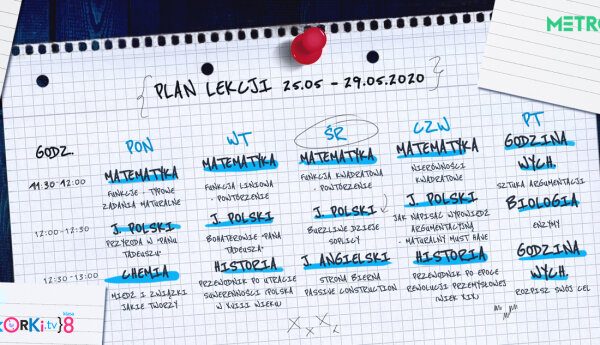 METRO
{ PLAN LEKCJI 25.05 - 29.05.2020 }
GODZ.
PON
WT
ŚR
CZW
PT
11:30-12:00
MATEMATYKA
FUNKCJE - TYPOWE
ZADANIA MATURALNE
MATEMATYKA
FUNKCJA LINIOWA
- POWTÓRZENIE
MATEMATYKA
FUNKCJA KWADRATOWA
- POWTÓRZENIE
MATEMATYKA
NIERÓWNOŚCI
KWADRATOWE
GODZINA
WYCH.
SZTUKA ARGUMENTACJI
12:00-12:30
J. POLSKI
PRZYRODA W "PANU
TADEUSZU"
J. POLSKI
BOHATEROWIE "PANA
TADEUSZA"
J. POLSKI
BURZLIWE DZIEJE
SOPLICY
J. POLSKI
JAK NAPISAĆ WYPOWIEDŹ
ARGUMENTACYJNĄ
- MATURALNY MUST HAVE
BIOLOGIA
ENZYMY
12:30-13:00
CHEMIA
MIEDŹ I ZWIĄZKI
JAKIE TWORZY
HISTORIA
PRZEWODNIK PO UTRACIE
SUWERENNOŚCI (POLSKA
W XVIII WIEKU)
J. ANGIELSKI
STRONA BIERNA
PASSIVE CONSTRUCTION
HISTORIA
PRZEWODNIK PO EPOCE
REWOLUCJI PRZEMYSŁOWEJ
(WIEK XIX)
GODZINA
WYCH.
ROZPISZ SWÓJ CEL
KORKI.tv}8
klasa